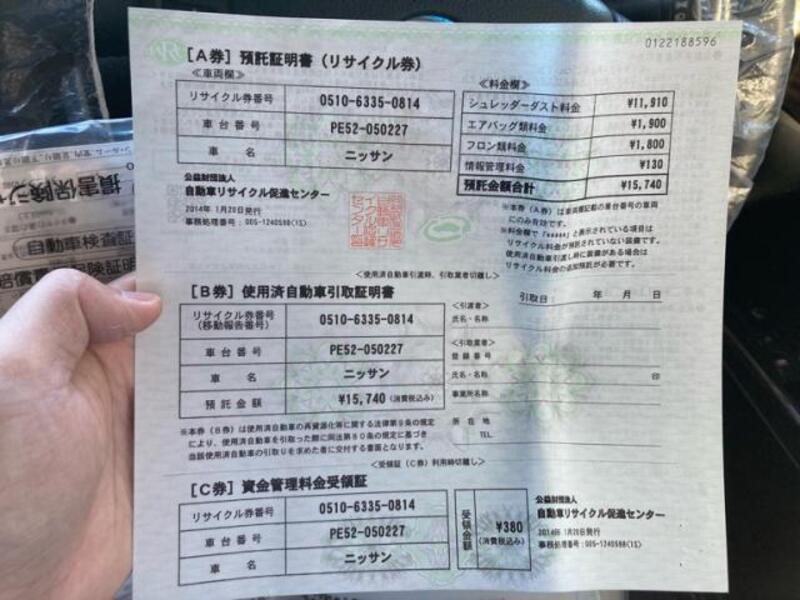 0122188596
[A券] 預託証明書(リサイクル券)
≪車両欄≫
リサイクル券番号 0510-6335-0814
車台番号 PE52-050227
車名 ニッサン
≪料金欄≫
シュレッダーダスト料金 ¥11,910
エアバッグ類料金 ¥1,900
フロン類料金 ¥1,800
情報管理料金 ¥130
預託金額合計 ¥15,740
公益財団法人
自動車リサイクル促進センター
2014年 1月20日発行
事務処理番号:005-1240598(1S)
※本券(A券)は車両欄記載の車台番号の車両
にのみ有効です。
※料金欄で「*****」と表示されている項目は
リサイクル料金が預託されていない装備です。
使用済自動車引渡し時に装備がある場合は
リサイクル料金の追加預託が必要です。
<使用済自動車引渡時、引取業者切離し>
[B券] 使用済自動車引取証明書
リサイクル券番号
(移動報告番号) 0510-6335-0814
車台番号 PE52-050227
車名 ニッサン
預託金額 ¥15,740 (消費税込み)
引取日: 年 月 日
<引渡者>
氏名・名称
<引取業者>
登録番号
氏名・名称 印
事業所名称
所在地
TEL
※本券(B券)は使用済自動車の再資源化等に関する法律第9条の規定
により、使用済自動車を引取った際に同法第80条の規定に基づき
当該使用済自動車の引取りを求めた者に交付する書面となります。
<受領証(C券)利用時切離し>
[C券] 資金管理料金受領証
リサイクル券番号 0510-6335-0814
車台番号 PE52-050227
車名 ニッサン
受領金額 ¥380
(消費税込み)
公益財団法人
自動車リサイクル促進センター
2014年 1月20日発行
事務処理番号:005-1240598(1S)
損害保険ジ
自動車検査証